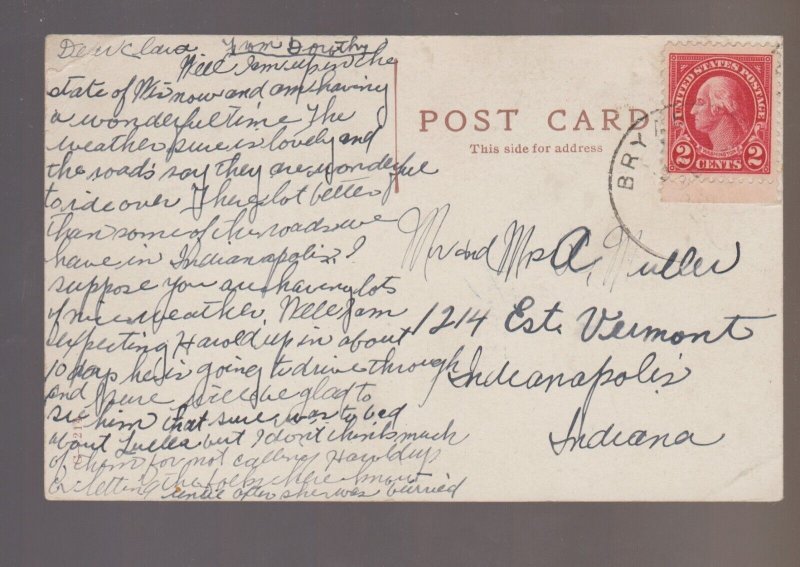 Dear Clara from Dorothy
Well I am up in the
state of Wis now and am having
a wonderful time The
weather sure is lovely and
the roads say they are wonderful
to ride over They alot better
than some of the roads we
have in Indianapolis. I
suppose you are having lots
of nice weather. Well I am
expecting Harold up in about
10 days he is going to drive through
and I sure will be glad to
see him that sure was to bad
about Luella but I don't think much
of them for not calling Harold up
or letting the folks here know
until after she was burried
POST CARD
This side for address
UNITED STATES POSTAGE
WASHINGTON
2 CENTS 2
BRY
Mr and Mrs A. Muller
1214 Est. Vermont
Indianapolis
Indiana